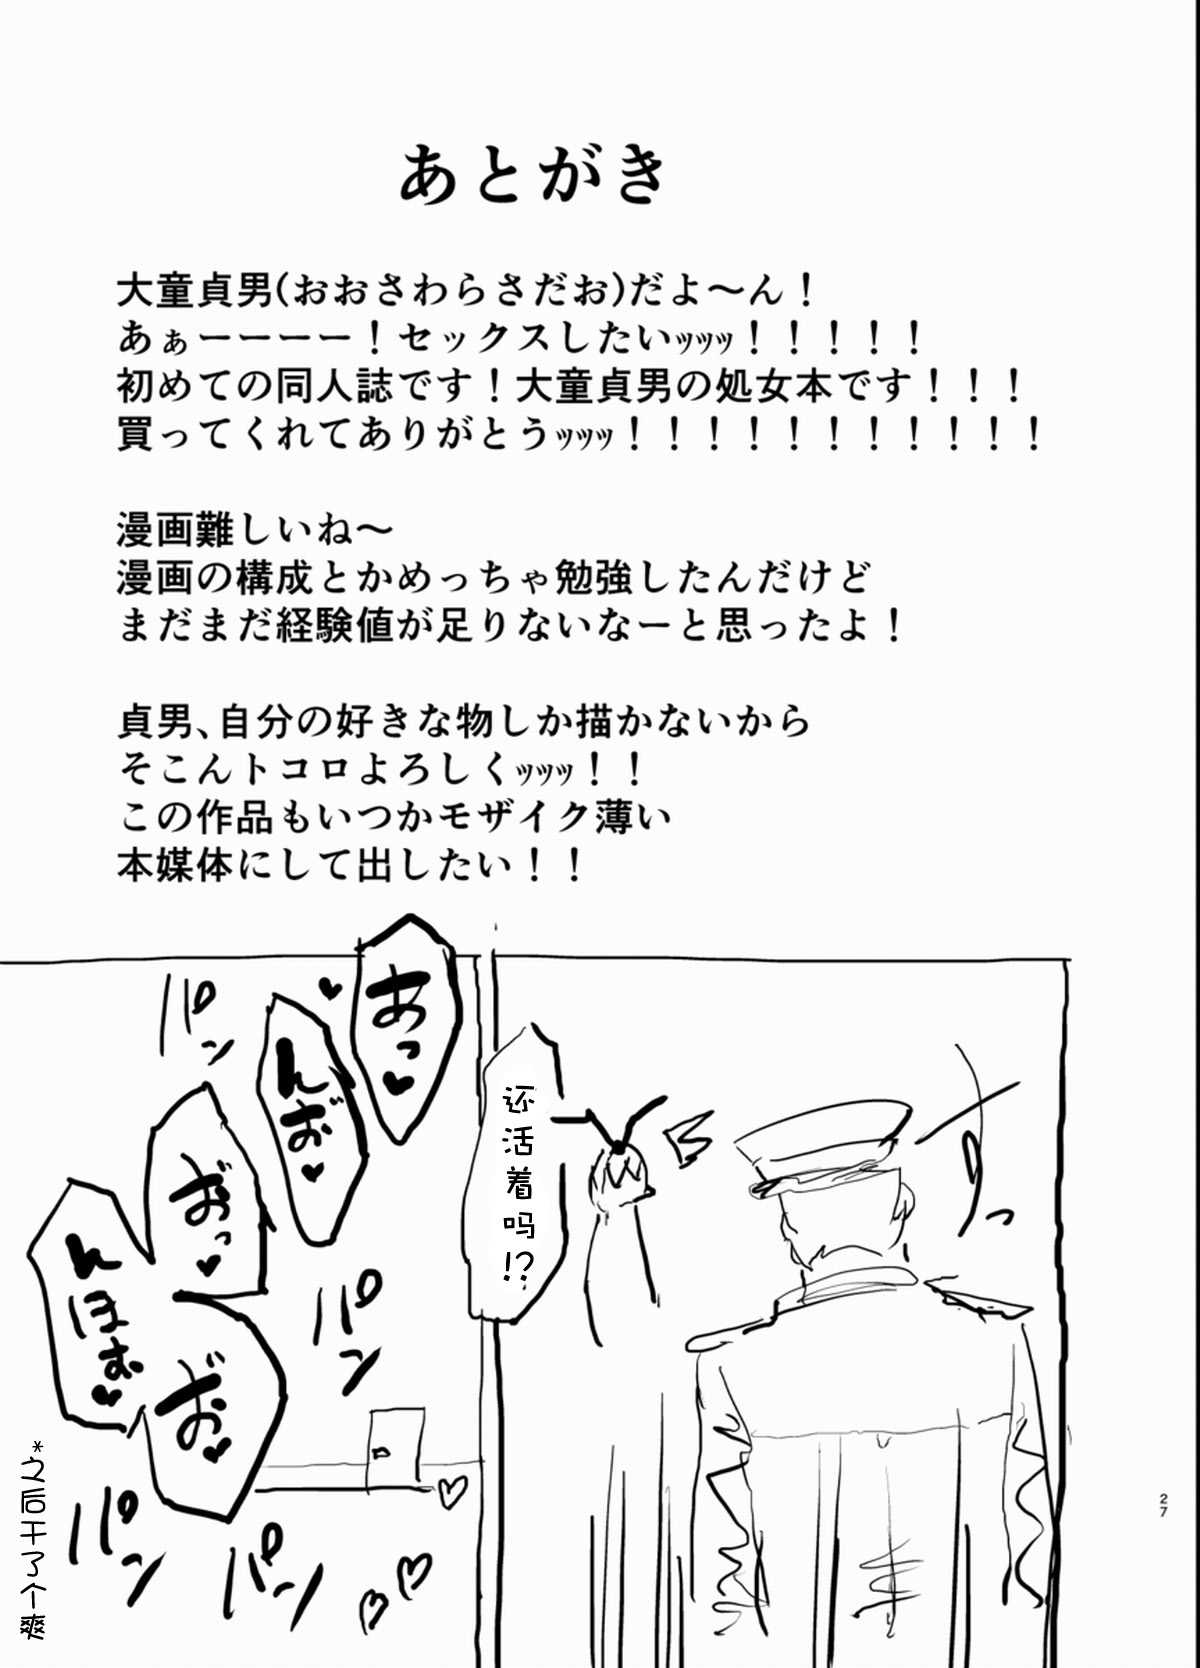 あとがき
大童貞男(おおさわらさだお)だよ～ん！
あぁーーーー！セックスしたいｯｯｯ！！！！！
初めての同人誌です！大童貞男の処女本です！！！
買ってくれてありがとうｯｯｯ！！！！！！！！！！！
漫画難しいね～
漫画の構成とかめっちゃ勉強したんだけど
まだまだ経験値が足りないなーと思ったよ！
貞男、自分の好きな物しか描かないから
そこんトコロよろしくｯｯｯ！！
この作品もいつかモザイク薄い
本媒体にして出したい！！
还活着吗!?
あっ♥
んお♥
おっ♥
んほお♥
お♥
パン
パン
パン
パン
*之后干了个爽
27